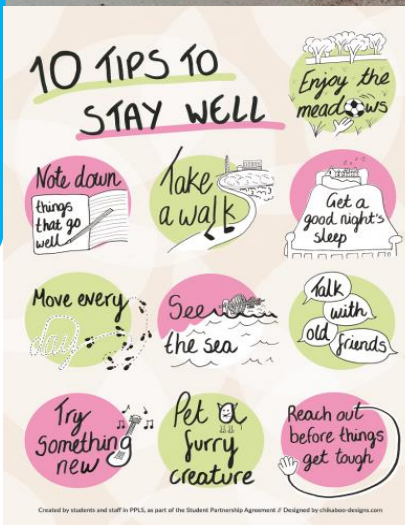 10 TIPS TO
STAY WELL
Enjoy the
meadows
Note down
things
that go
well
Take
a walk
Get a
good night's
sleep
Move every
day
See
the sea
Talk
with
old
friends
Try
something
new
Pet a
furry
creature
Reach out
before things
get tough
Created by students and staff in PPLS, as part of the Student Partnership Agreement // Designed by chikaboo-designs.com